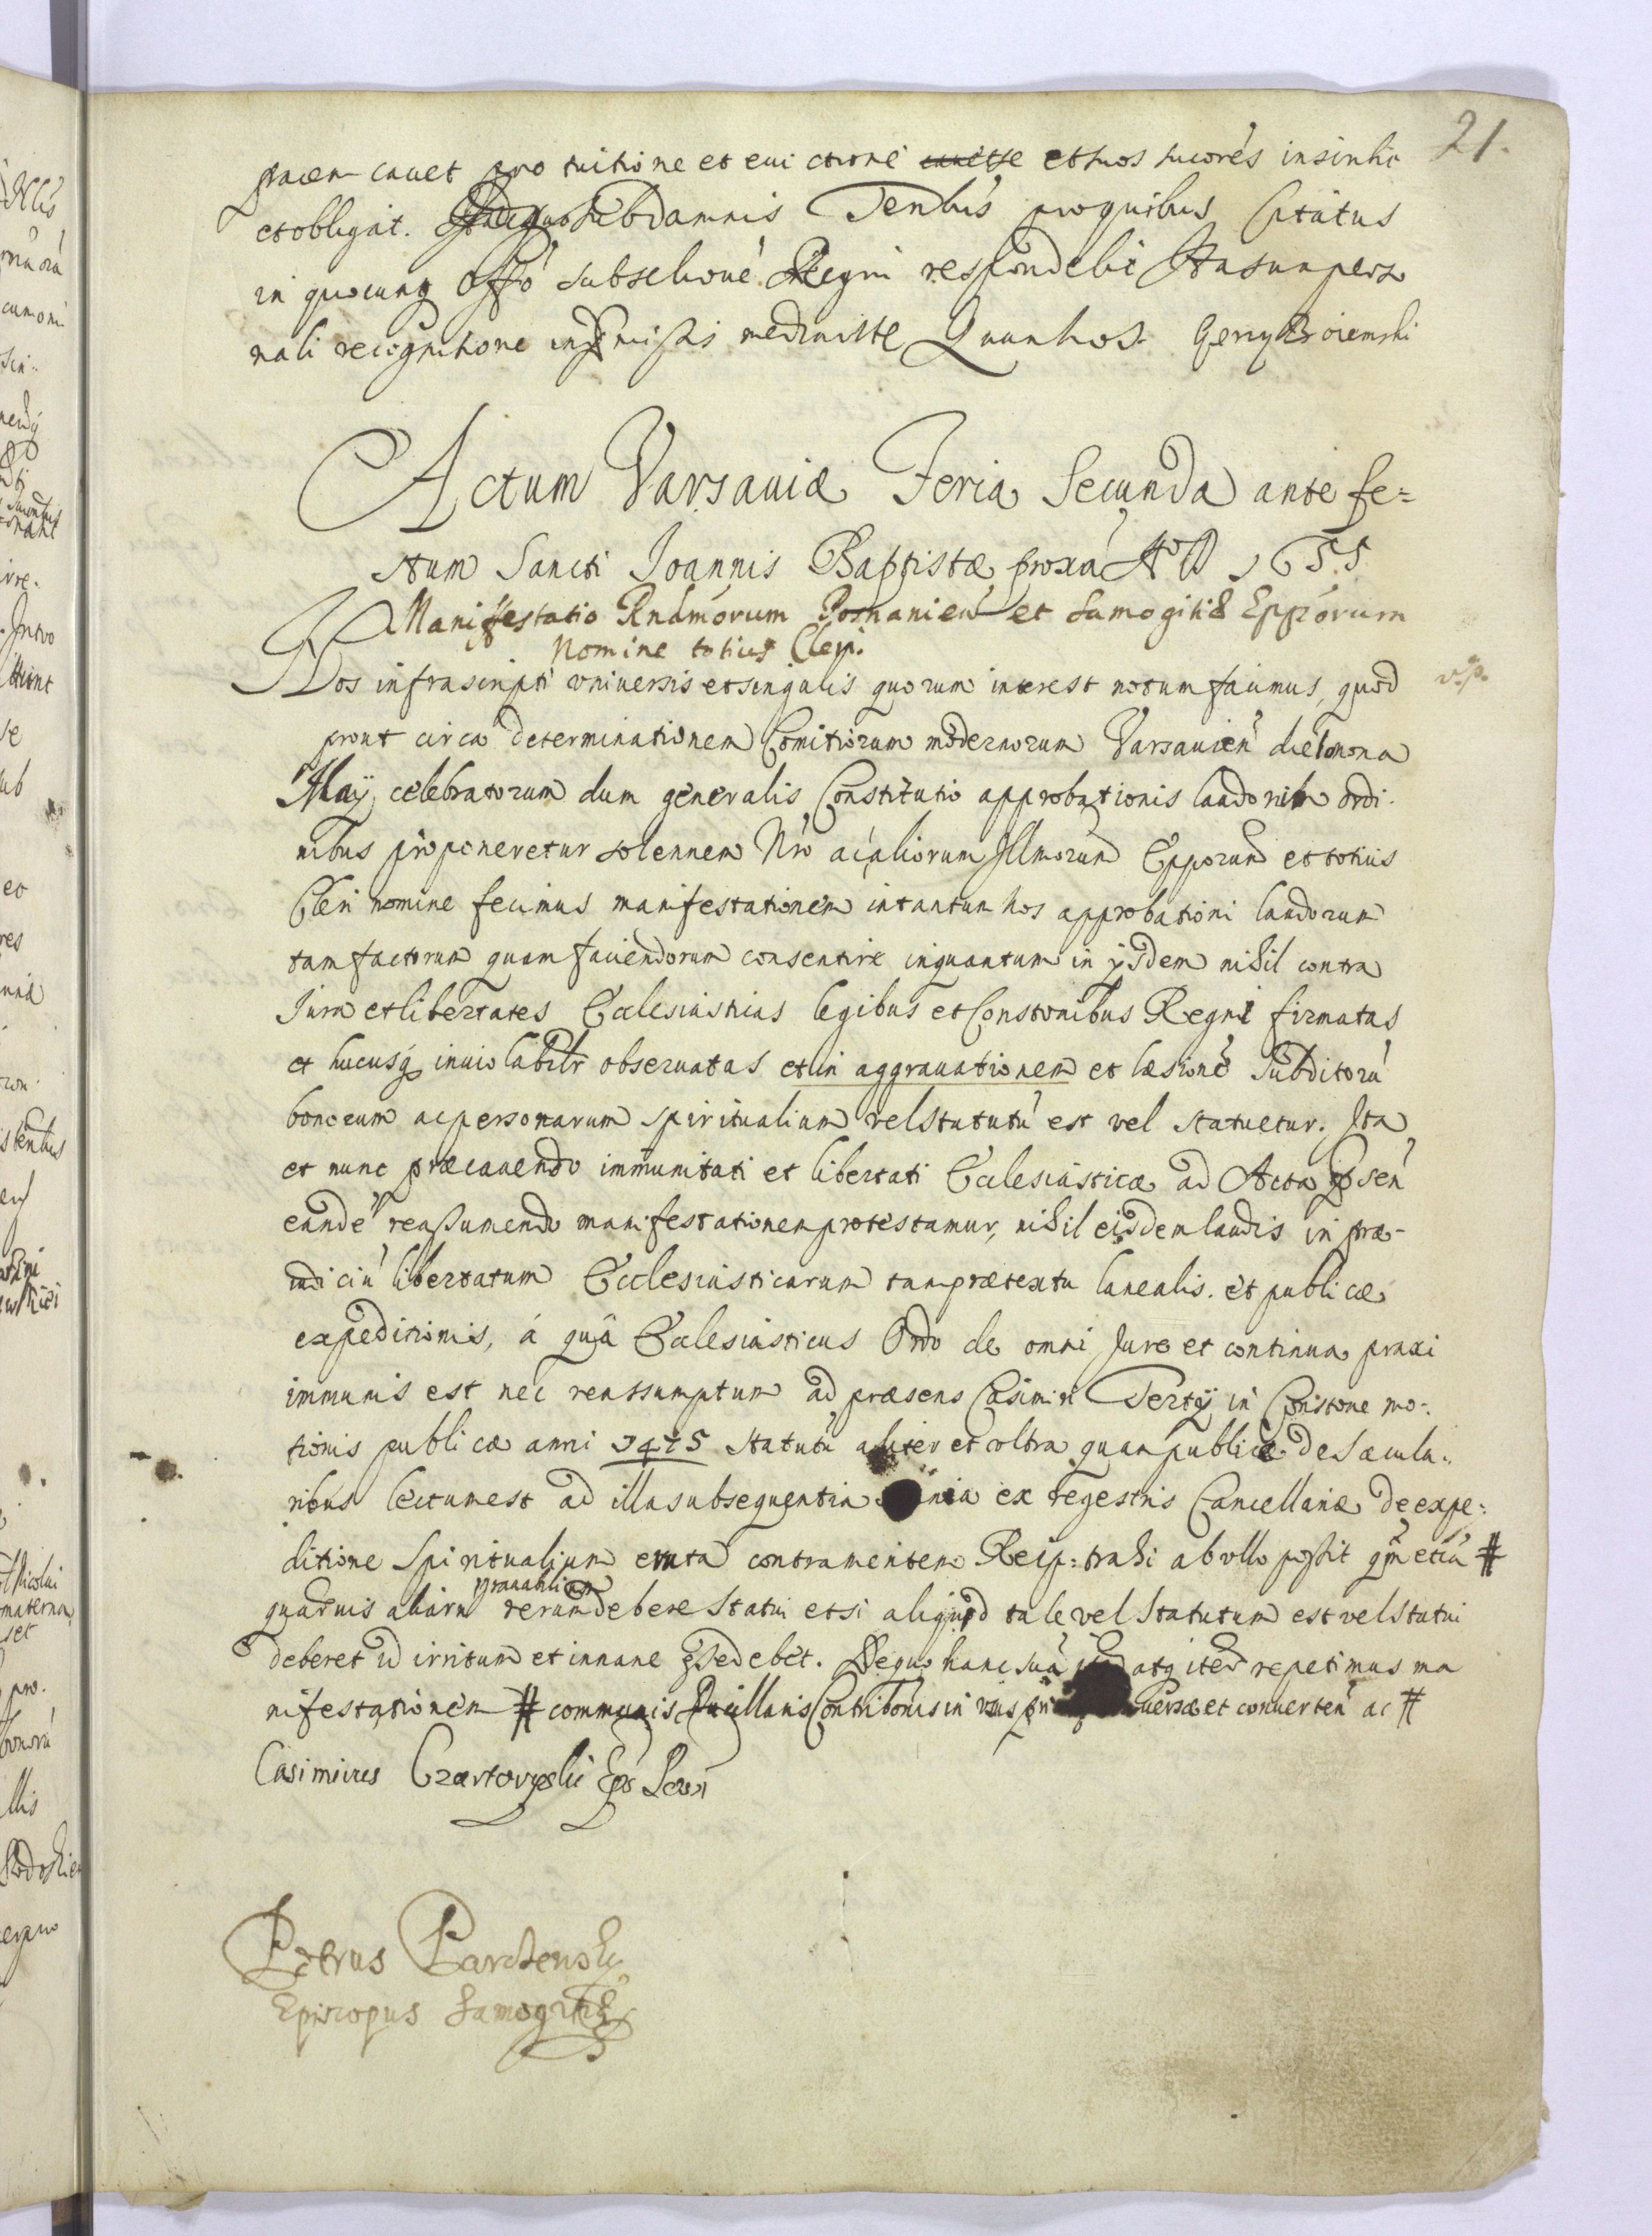 21.
cavet pro tuitione et evictione et suos
et obligat. sub damnis pro quibus Citatus
in quocunq Offo Regni respondebit
nali recognitione mediante
Actum Varsaviæ Feria Secunda ante fe=
stum Sancti Joannis Baptistæ proxã A° D 1655
Manifestatio Rndmorum Posnanien et Samogitiæ Epporum
Nomine totius Cleri.
Nos infrascripti universis et singulis quorum interest notum facimus, quod
prout circa determinationem Comitiorum modernorum Varsavien die nona
Maÿ celebratorum dum generalis Constitutio approbationis laudorum ordi-
nibus proponeretur solennem Nro ac aliorum Illmorum Epporum et totius
Cleri nomine fecimus manifestationem in tantum nos approbationi laudorum
tam factorum quam faciendorum consentire inquantum in ijsdem nihil contra
Jura et libertates Ecclesiasticas legibus et Constonibus Regni firmatas
et hucusq inviolabilr observatas et in aggravationem et læsionẽ Subditorũ
bonorum ac personarum spiritualium vel statutũ est vel statuetur. Ita
et nunc præcavendo immunitati et libertati Ecclesiasticæ ad Acta
eandẽ reassumendo manifestationem protestamur, nihil eisdem laudis in præ-
iudiciũ libertatum Ecclesiasticarum tam prætextu lanealis et publicæ
expeditionis, á quâ Ecclesiasticus Ordo de omni Jure et continua praxi
immunis est nec reassumptum ad præsens Casimiri Tertij in Constone mo-
tionis publicæ anni 1475 statutũ aliter et ultra quam publice de sæcula-
ribus lectum est ad illa subsequentia ex regestris Cancellariæ de expe-
ditione Spiritualium eruta contra mentem Reip: trahi ab ullo possit etiã #
quarvis aliarũ gravabilium rerum debere statui et si aliquod tale vel statutum est vel statui
deberet id irritum et innane esse debet. De quo hanc suã atq iterũ repetimus ma
nifestationem # communis Contribonis in usus et converten ac #
Casimirus Czartoryski Epũs Posn
Petrus Parczewsky
Episcopus Samogitiæ